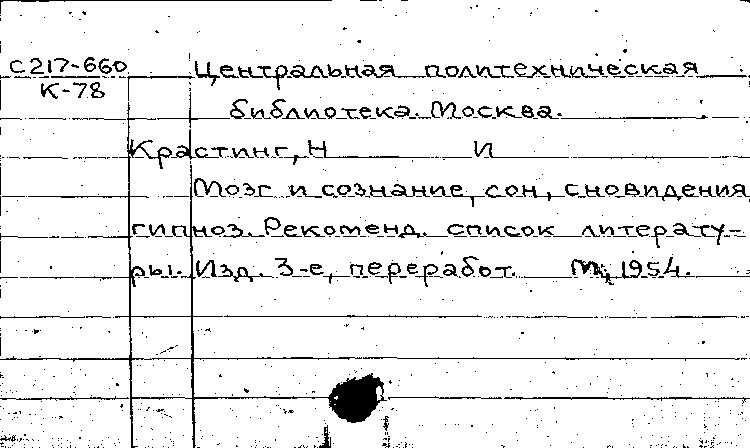 С217-660 Центральная политехническая
К-78 библиотека. Москва.
Крастинг, Н И
Мозг и сознание, сон, сновидения
гипноз. Рекоменд. список литерату-
ры. Изд. 3-е, переработ. М, 1954.